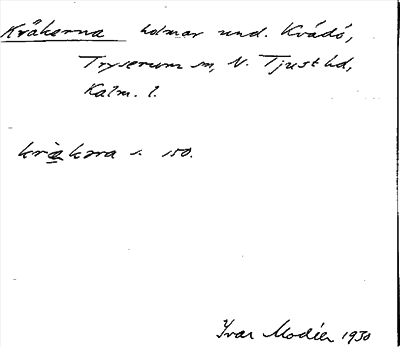 Kråkerna holmar und. Kvädö,
Tryserum sn, N. Tjust hd,
Kalm. l.
s. 150.
Ivar Modéer 1930